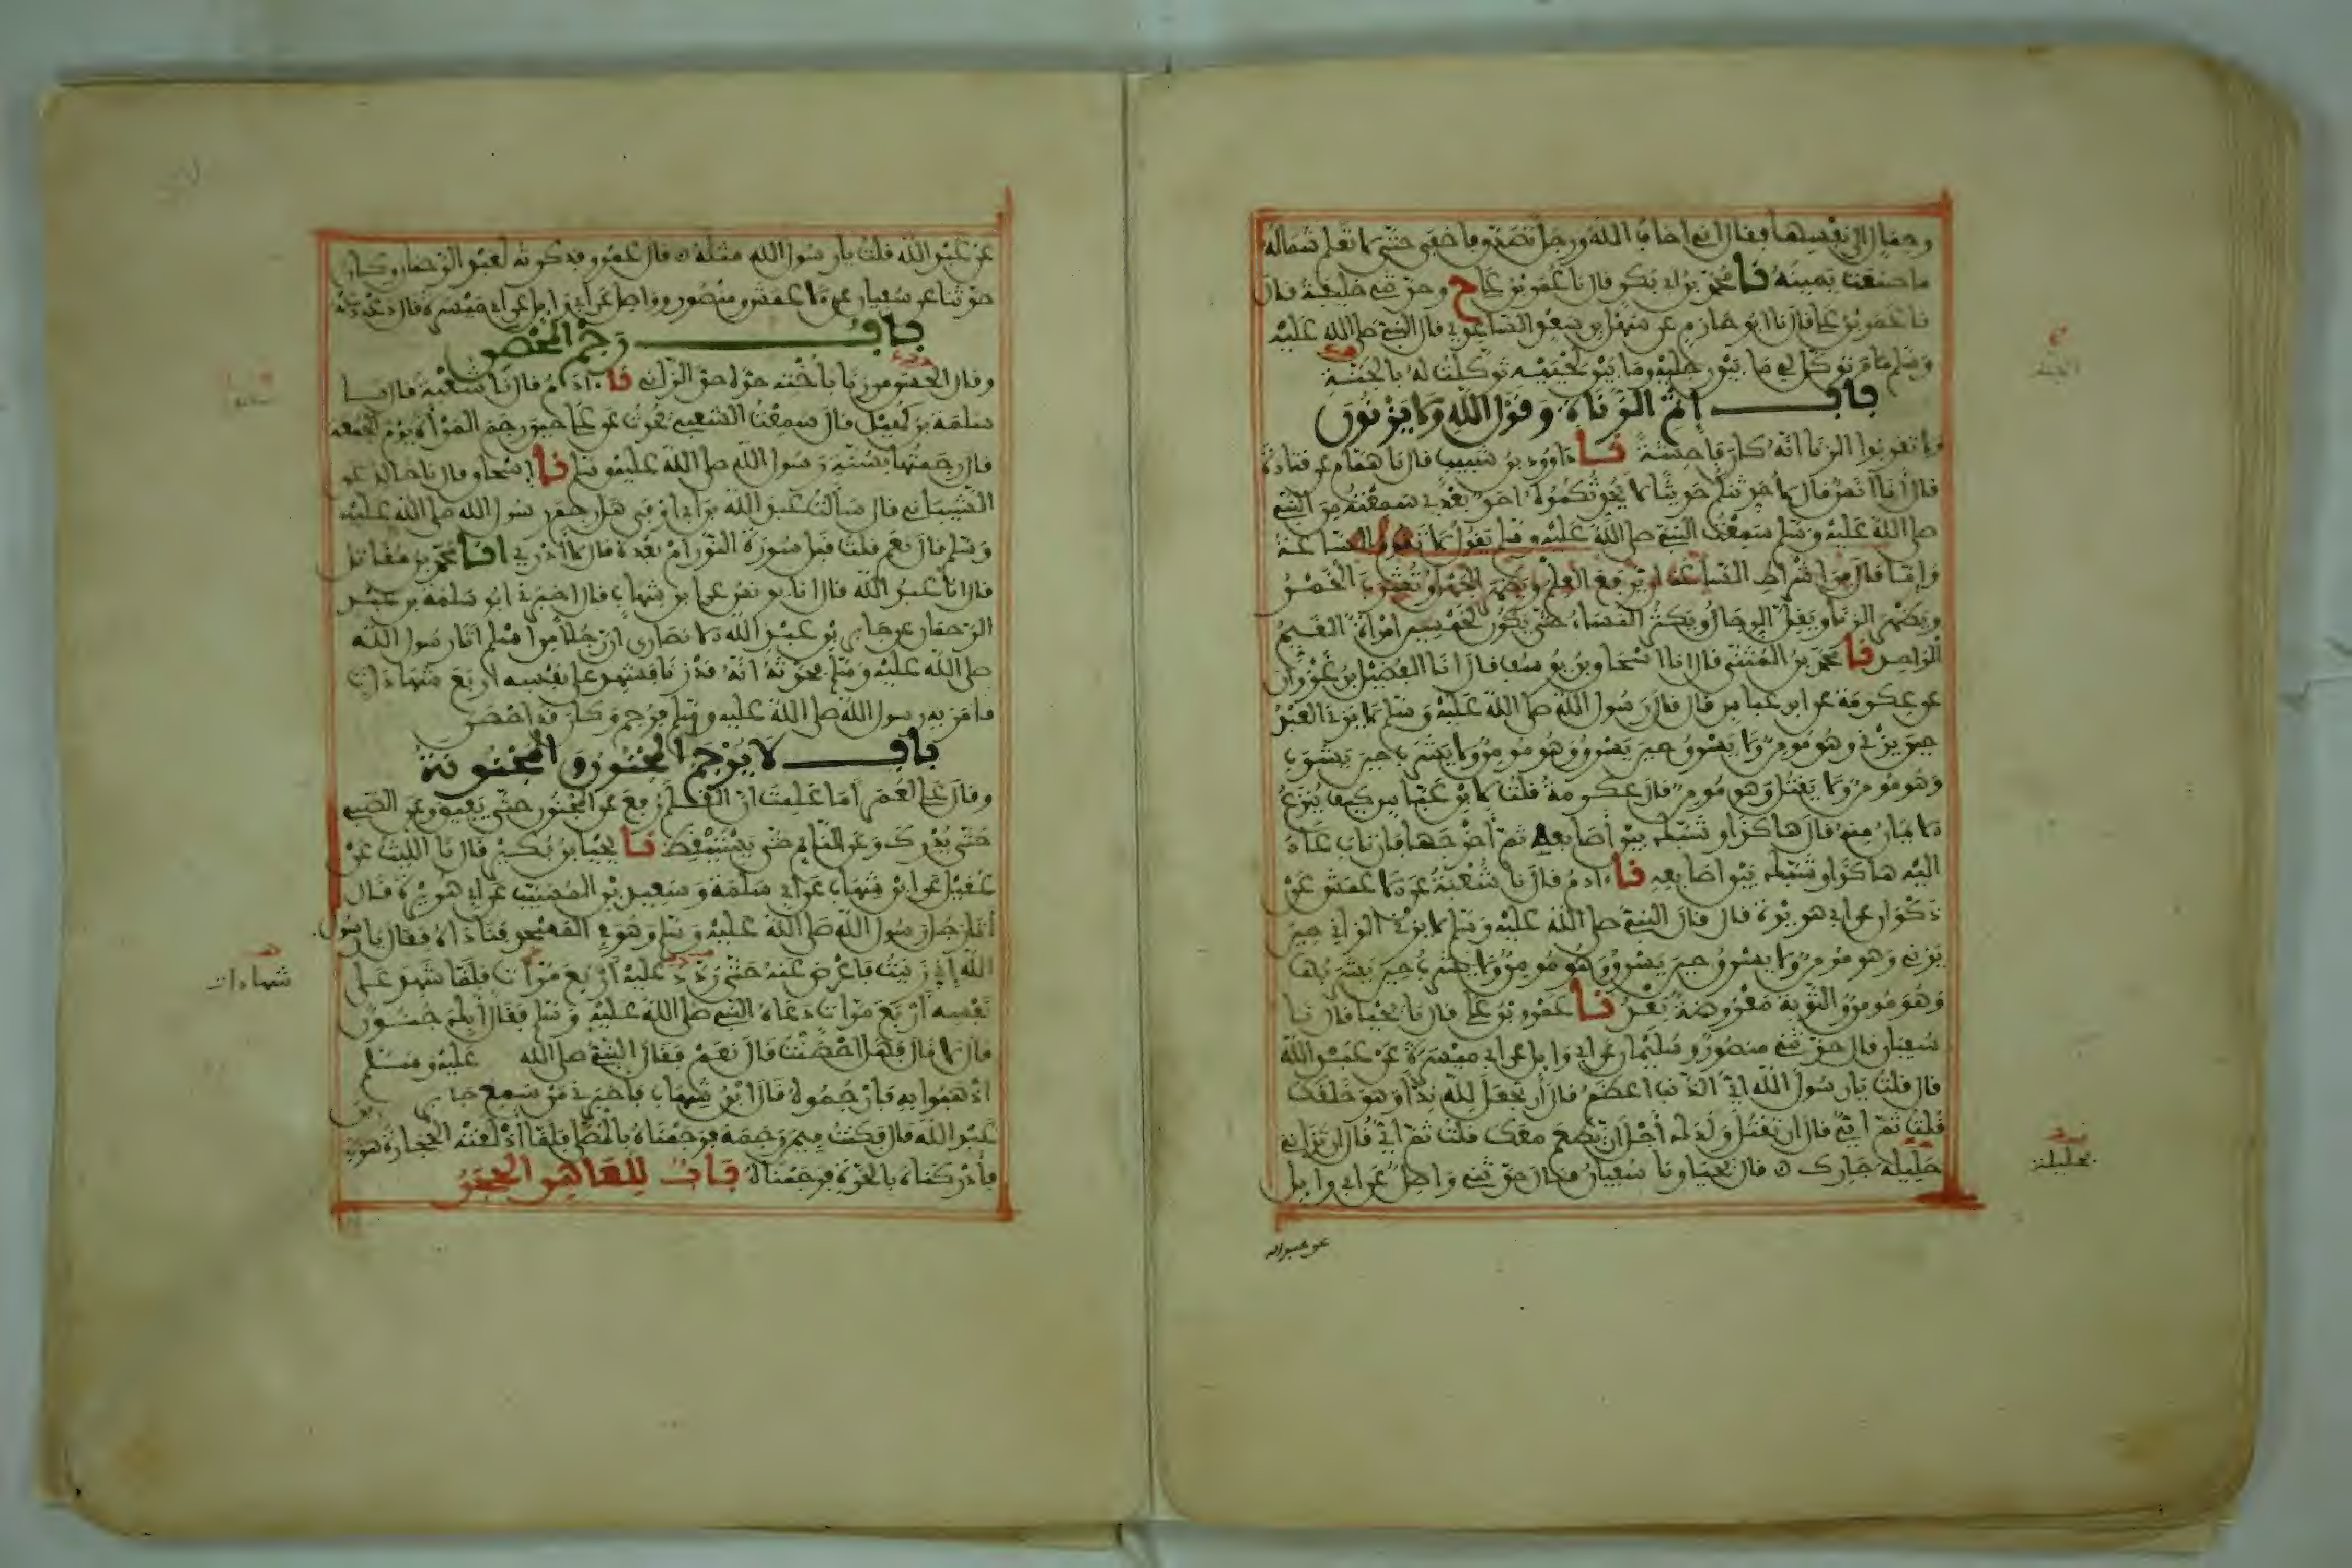 وجمال إلى نفسها فقال إني أخاف الله ورجل تصدق فأخفى حتى لا تعلم شماله
ما صنعت يمينه نا محمد بن أبي بكر قال نا عمر بن علي ح وحدثني خليفة قال
نا عمر بن علي قال نا أبو حازم عن سهل بن سعد الساعدي قال النبي صلى الله عليه
وسلم من توكل لي ما بين رجليه وما بين لحييه توكلت له بالجنة
باب إثم الزناة وقول الله ولا يزنون
ولا تقربوا الزنا انه كان فاحشة نا داوود بن شبيب قال نا همام عن قتادة
قال أنا أنس قال لأحدثنكم حديثا لا يحدثكموه أحد بعدي سمعته من النبي
صلى الله عليه وسلم سمعت النبي صلى الله عليه وسلم يقول لا تقوم الساعة
وإما قال من أشراط الساعة أن يرفع العلم ويظهر الجهل وتشرب الخمر
ويظهر الزنا ويقل الرجال ويكثر النساء حتى يكون لخمسين امرأة القيم
الواحد نا محمد بن المثنى قال انا إسحاق بن يوسف قال أنا الفضيل بن غزوان
عن عكرمة عن ابن عباس قال قال رسول الله صلى الله عليه وسلم لا يزني العبد
حين يزني وهو مومن ولا يسرق حين يسرق وهو مومن ولا يشرب حين يشرب
وهو مومن ولا يقتل وهو مومن قال عكرمة قلت لابن عباس كيف ينزع
الايمان منه قال هاكذا وشبك بين أصابعه ثم أخرجها فإن تاب عاد
إليه هاكذا وشبك بين أصابعه نا ءادم قال نا شعبة عن الأعمش عن
ذكوان عن أبي هريرة قال قال النبي صلى الله عليه وسلم لا يزني الزاني حين
يزني وهو مومن ولا يسرق حين يسرق وهو مومن ولا يشرب حين يشربها
وهو مومن والتوبة معروضة بعد نا عمرو بن علي قال نا يحيى قال نا
سفيان قال حدثني منصور وسليمان عن أبي وائل عن أبي ميسرة عن عبد الله
قال قلت يا رسول الله أي الذنب أعظم قال أن تجعل لله ندا وهو خلقك
قلت ثم أي قال أن تقتل ولدك أجل أن يطعم معك قلت ثم أي قال أن تزاني
حليلة جارك قال يحيى ونا سفيان قال حدثني واصل عن أبي وائل
عن عبد الله
بحليلة
عن عبد الله قلت يا رسول الله مثله قال عمرو فذكرته لعبد الرحمان وكان
حدثنا عن سفيان عن الأعمش ومنصور وواصل عن أبي وائل عن أبي ميسرة قال دعه دعه
باب رجم المحصن
وقال الحسن من زنا بأخته حده حد الزاني نا ءادم قال نا شعبة قال نا
سلمة بن كهيل قال سمعت الشعبي يحدث عن علي حين رجم المرأة يوم الجمعة
قال رجمتها بسنة رسول الله صلى الله عليه وسلم نا إسحاق قال نا خالد عن
الشيباني قال سألت عبد الله بن أبي أوفى هل رجم رسول الله صلى الله عليه
وسلم قال نعم قلت قبل سورة النور أم بعده قال لا أدري أنا محمد بن مقاتل
قال انا عبد الله قال انا يونس عن ابن شهاب قال أخبرني أبو سلمة بن عبد
الرحمان عن جابر بن عبد الله الأنصاري أن رجلا من أسلم أتا رسول الله
صلى الله عليه وسلم يحدثه أنه قد زنا فشهد على نفسه أربع شهادات
فأمر به رسول الله صلى الله عليه وسلم فرجم وكان قد احصن
باب لا يرجم المجنون والمجنونة
وقال علي لعمر أما علمت أن القلم رفع عن المجنون حتى يفيق وعن الصبي
حتى يدرك وعن النائم حتى يستيقظ نا يحيى بن بكير قال نا الليث عن
عقيل عن ابن شهاب عن أبي سلمة وسعيد بن المسيب عن أبي هريرة قال
أتا رجل رسول الله صلى الله عليه وسلم وهو في المسجد فناداه فقال يا رسول
الله إني زنيت فأعرض عنه حتى ردد عليه أربع مرات فلما شهد على
شهادات
نفسه أربع مرات دعاه النبي صلى الله عليه وسلم فقال أبك جنون
قال لا قال فهل احصنت قال نعم فقال النبي صلى الله عليه وسلم
اذهبوا به فارجموه قال ابن شهاب فأخبرني من سمع جابر بن
عبد الله قال فكنت فيمن رجمه فرجمناه بالمصلى فلما أذلقته الحجارة هرب
فأدركناه بالحرة فرجمناه باب للعاهر الحجر